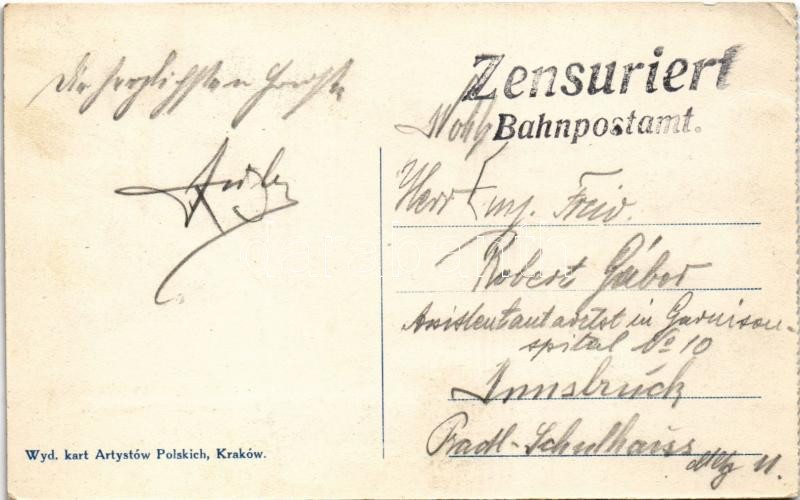 Die herzlichsten Grüsse
Zensuriert
Bahnpostamt.
Herr
Robert Gábor
Assistentantarztst in Garnison-
spital No 10
Innsbruck
Pradl-Schulhaus
Wyd. kart Artystów Polskich, Kraków.